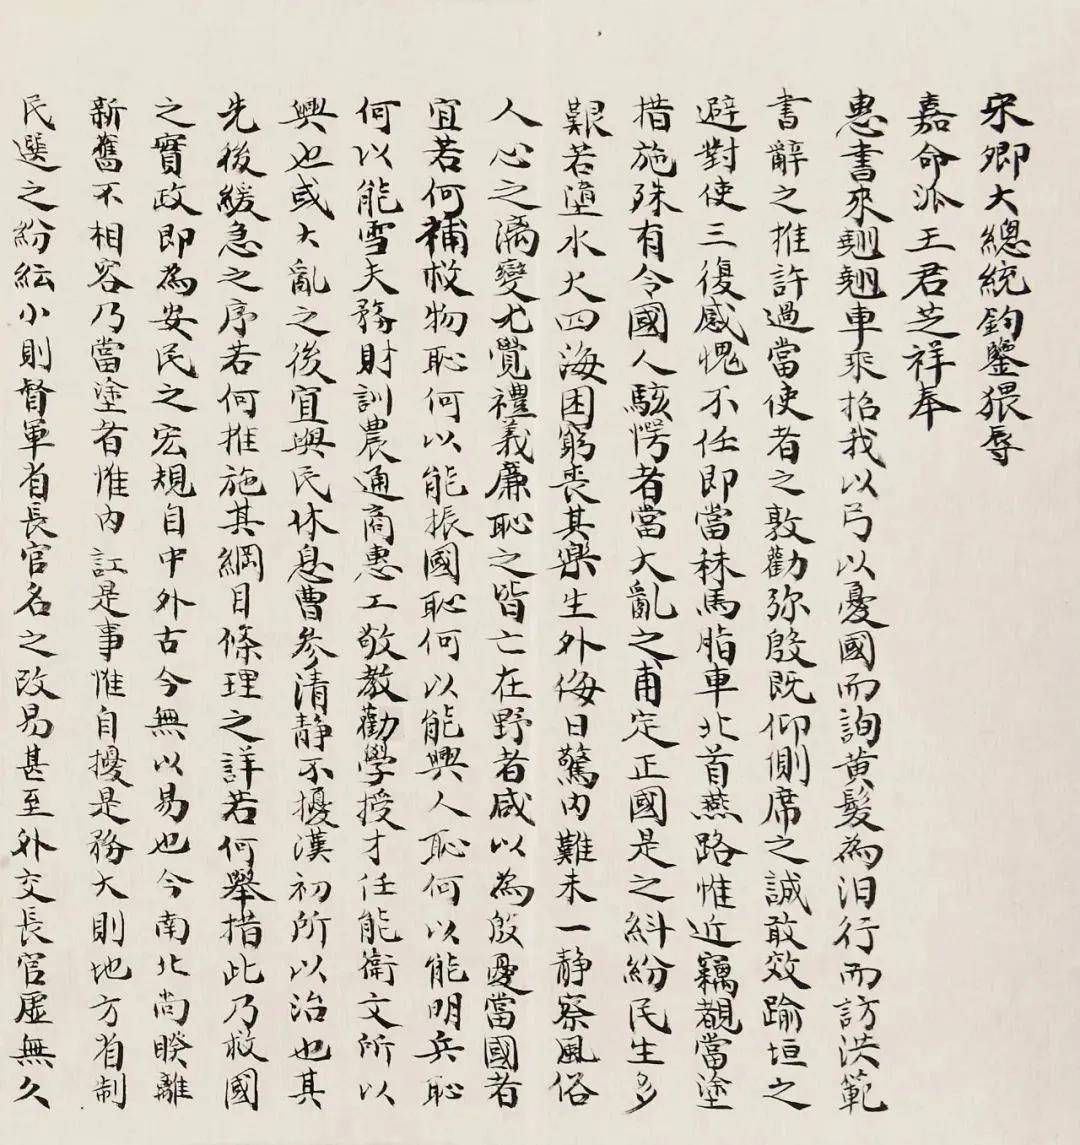 宋卿大總統鈞鑒猥辱
嘉命派王君芝祥奉
惠書來翹翹車乘招我以弓以憂國而詢黃髮為汨行而訪洪範
書辭之推許過當使者之敦勸弥殷既仰側席之誠敢效踰垣之
避對使三復感愧不任即當秣馬脂車北首燕路惟近竊觀當塗
措施殊有令國人駭愕者當大亂之甫定正國是之糾紛民生多
艱若墮水火四海困窮喪其樂生外侮日驚內難未一靜察風俗
人心之漓變尤覺禮義廉恥之皆亡在野者咸以為殷憂當國者
宜若何補救物恥何以能振國恥何以能興人恥何以能明兵恥
何以能雪夫務財訓農通商惠工敬教勸學授才任能衛文所以
興也或大亂之後宜與民休息曹參清靜不擾漢初所以治也其
先後緩急之序若何推施其綱目條理之詳若何舉措此乃救國
之實政即為安民之宏規自中外古今無以易也今南北尚暌離
新舊不相容乃當塗者惟內訌是事惟自擾是務大則地方省制
民選之紛紜小則督軍省長官名之改易甚至外交長官虛無久